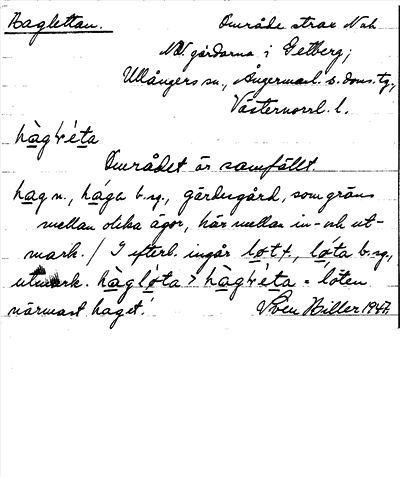 Haglettan.
Område strax N och
NV gårdarna i Getberg,
Ullångers sn., Ångermanl. s. doms. tg,
Västernorrl. l.
hàgléta
Området är samfällt.
hag n., hága b. sg., gärdsgård, som gräns
mellan olika ägor, här mellan in- och ut-
mark. / I efterl. ingår lot f., lóta b. sg.,
utmark. hàglóta > hàgléta = loten
närmast haget.
Sven Hiller 1947